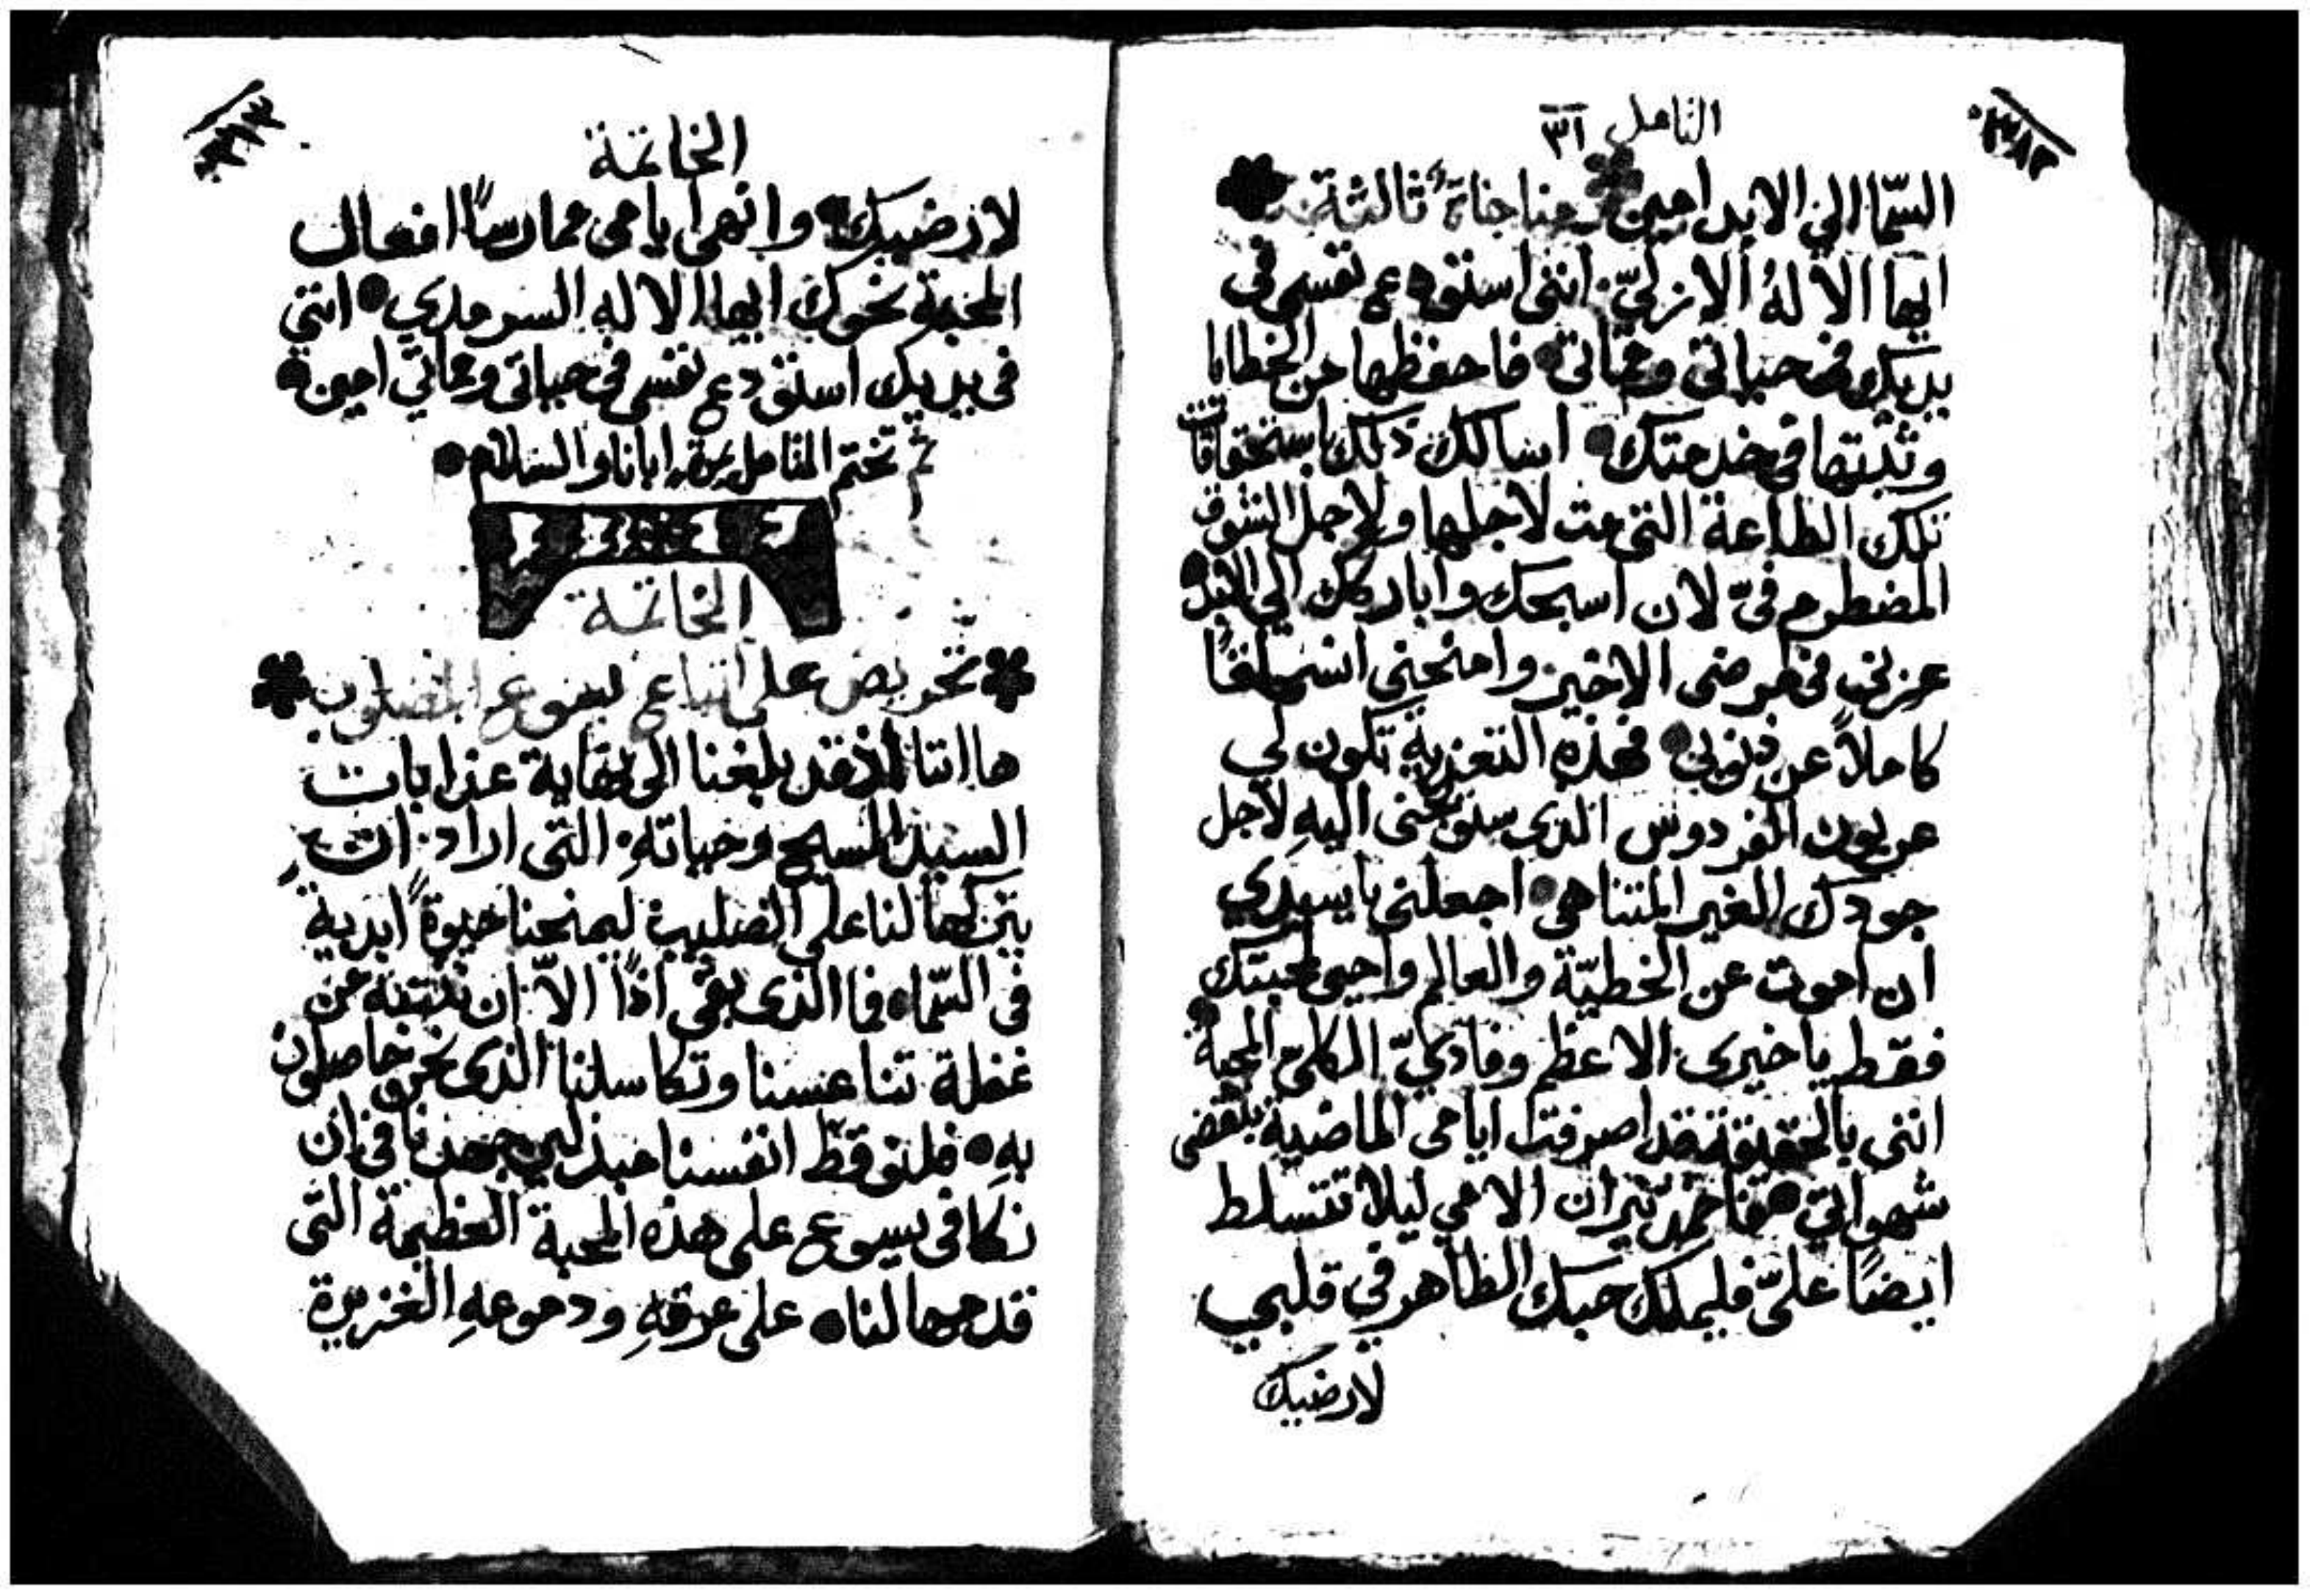 التامل ٣١
السّما الي الابد امين مناجاةٌ ثالثة
ايها الالهُ الازليّ انني استودع نفسي في
يديك في حياتي ومماتي فاحفظها من الخطايا
وثبتها في خدمتك اسالك ذلك باستحقاقات
تلك الطاعة التي مت لاجلها ولاجل الشوق
المضطرم فيّ لان اسبحك واباركك الي الابد
عزني في مرضي الاخير وامنحني اسفًا
كاملاً عن ذنوبي فهذه التعزية تكون لي
عربون الفردوس الذي سوف اليهِ لاجل
جودك الغير المتناهي اجعلني يا سيدي
ان اموت عن الخطيّة والعالم واحيي لمحبتك
فقط يا خيري الاعظم وفاديّ الكلي المحبة
انني بالحقيقة قد اصرفت ايامي الماضية
شهواتي فاخمد نيران الامي ليلا تتسلط
ايضًا عليّ فليملك حبك الظاهر في قلبي
لارضيك
الخاتمة
لارضيك وانهي ايامي ممارسًا افعال
المحبة نحوك ايها الاله السرمدي انني
في يديك استودع نفسي في حياتي ومماتي امين
ثم تختم التامل ابانا والسلام
الخاتمة
تحريض على اتباع يسوع المصلوب
ها اننا اذ قد بلغنا الى نهاية عذابات
السيد المسيح وحياتهِ التي اراد ان
يتركها لنا على الصليب ليمنحنا حيوةً ابدية
في السّما فما الذي بقي اذًا الاّ ان ننتبه من
غفلة تناعسنا وتكاسلنا الذي نحن حاصلون
بهِ فلنوقظ انفسنا مبذلين جهدنا في ان
نكافي يسوع على هذه المحبة العظيمة التي
قدمها لنا على عرقهِ ودموعهِ الغزيرة